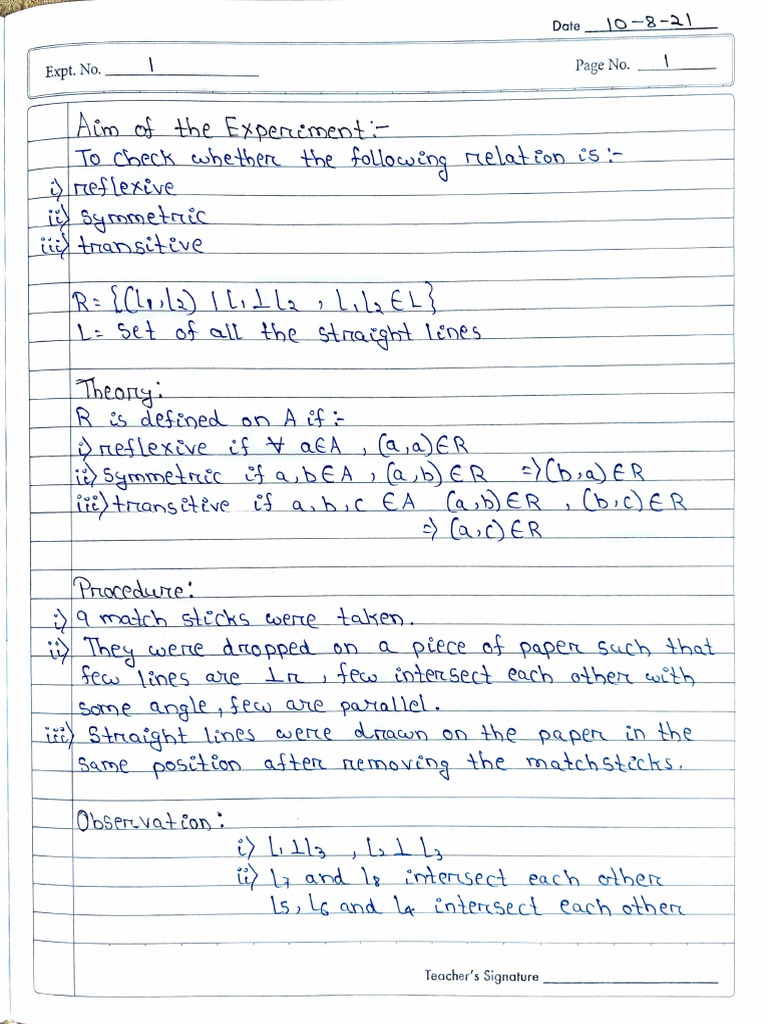 Date 10-8-21
Expt. No. 1
Page No. 1
Aim of the Experiment:-
To check whether the following relation is:-
i) reflexive
ii) symmetric
iii) transitive
R= {(l1,l2) | l1⊥l2 , l1,l2 ∈ L}
L= set of all the straight lines
Theory:
R is defined on A if:-
i) reflexive if ∀ a∈A , (a,a)∈R
ii) symmetric if a,b∈A , (a,b)∈R ⇒(b,a)∈R
iii) transitive if a,b,c ∈A (a,b)∈R , (b,c)∈R
⇒ (a,c)∈R
Procedure:
i) 9 match sticks were taken.
ii) They were dropped on a piece of paper such that
few lines are ⊥r , few intersect each other with
some angle, few are parallel.
iii) Straight lines were drawn on the paper in the
same position after removing the matchsticks.
Observation:
i) l1⊥l3 , l2⊥l3
ii) l7 and l8 intersect each other
l5, l6 and l4 intersect each other
Teacher's Signature